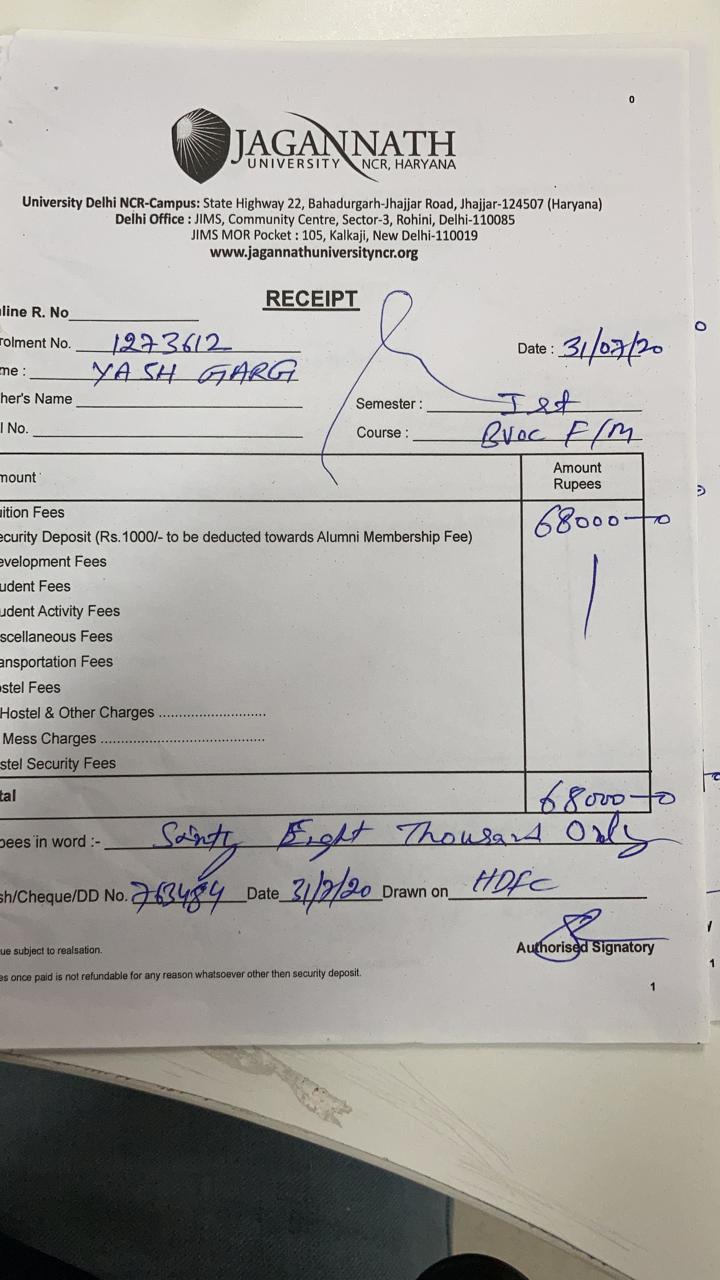 0
JAGANNATH
UNIVERSITY NCR, HARYANA
University Delhi NCR-Campus: State Highway 22, Bahadurgarh-Jhajjar Road, Jhajjar-124507 (Haryana)
Delhi Office : JIMS, Community Centre, Sector-3, Rohini, Delhi-110085
JIMS MOR Pocket : 105, Kalkaji, New Delhi-110019
www.jagannathuniversityncr.org
RECEIPT
line R. No
rolment No. 1273612 Date : 31/07/20
me : YASH GARG
her's Name Semester : Ist
l No. Course : BVOC F/M
mount Amount Rupees
ition Fees 68000
ecurity Deposit (Rs.1000/- to be deducted towards Alumni Membership Fee)
evelopment Fees
udent Fees
udent Activity Fees
scellaneous Fees
ansportation Fees
stel Fees
Hostel & Other Charges ...........................
Mess Charges ..........................................
stel Security Fees
tal 68000
pees in word :- Eight Thousand Only
sh/Cheque/DD No. 763484 Date 31/7/20 Drawn on HDFC
ue subject to realsation. Authorised Signatory
es once paid is not refundable for any reason whatsoever other then security deposit.
1
1